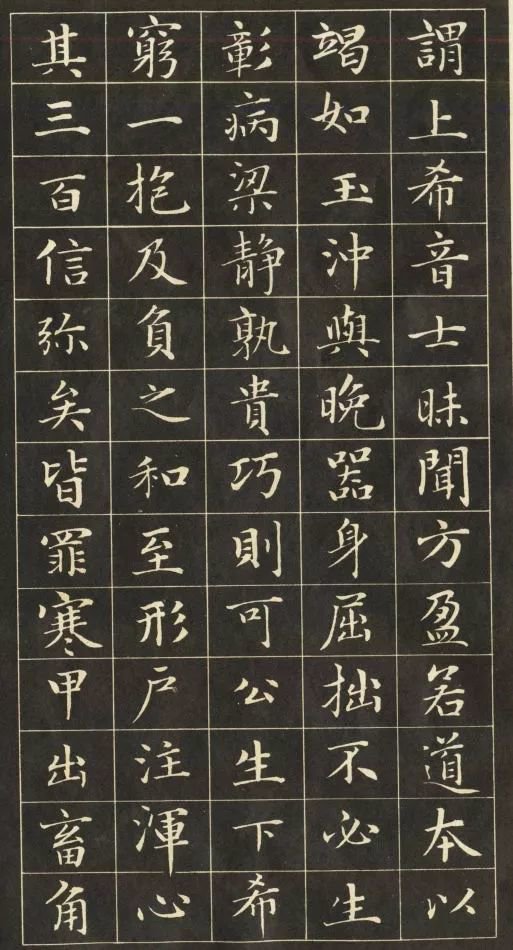 謂上希音士昧聞方盈若道本以
竭如玉沖與晚器身屈拙不必生
彰病梁靜孰貴巧則可公生下希
窮一抱及負之和至形戶注渾心
其三百信弥矣皆罪寒甲出畜角